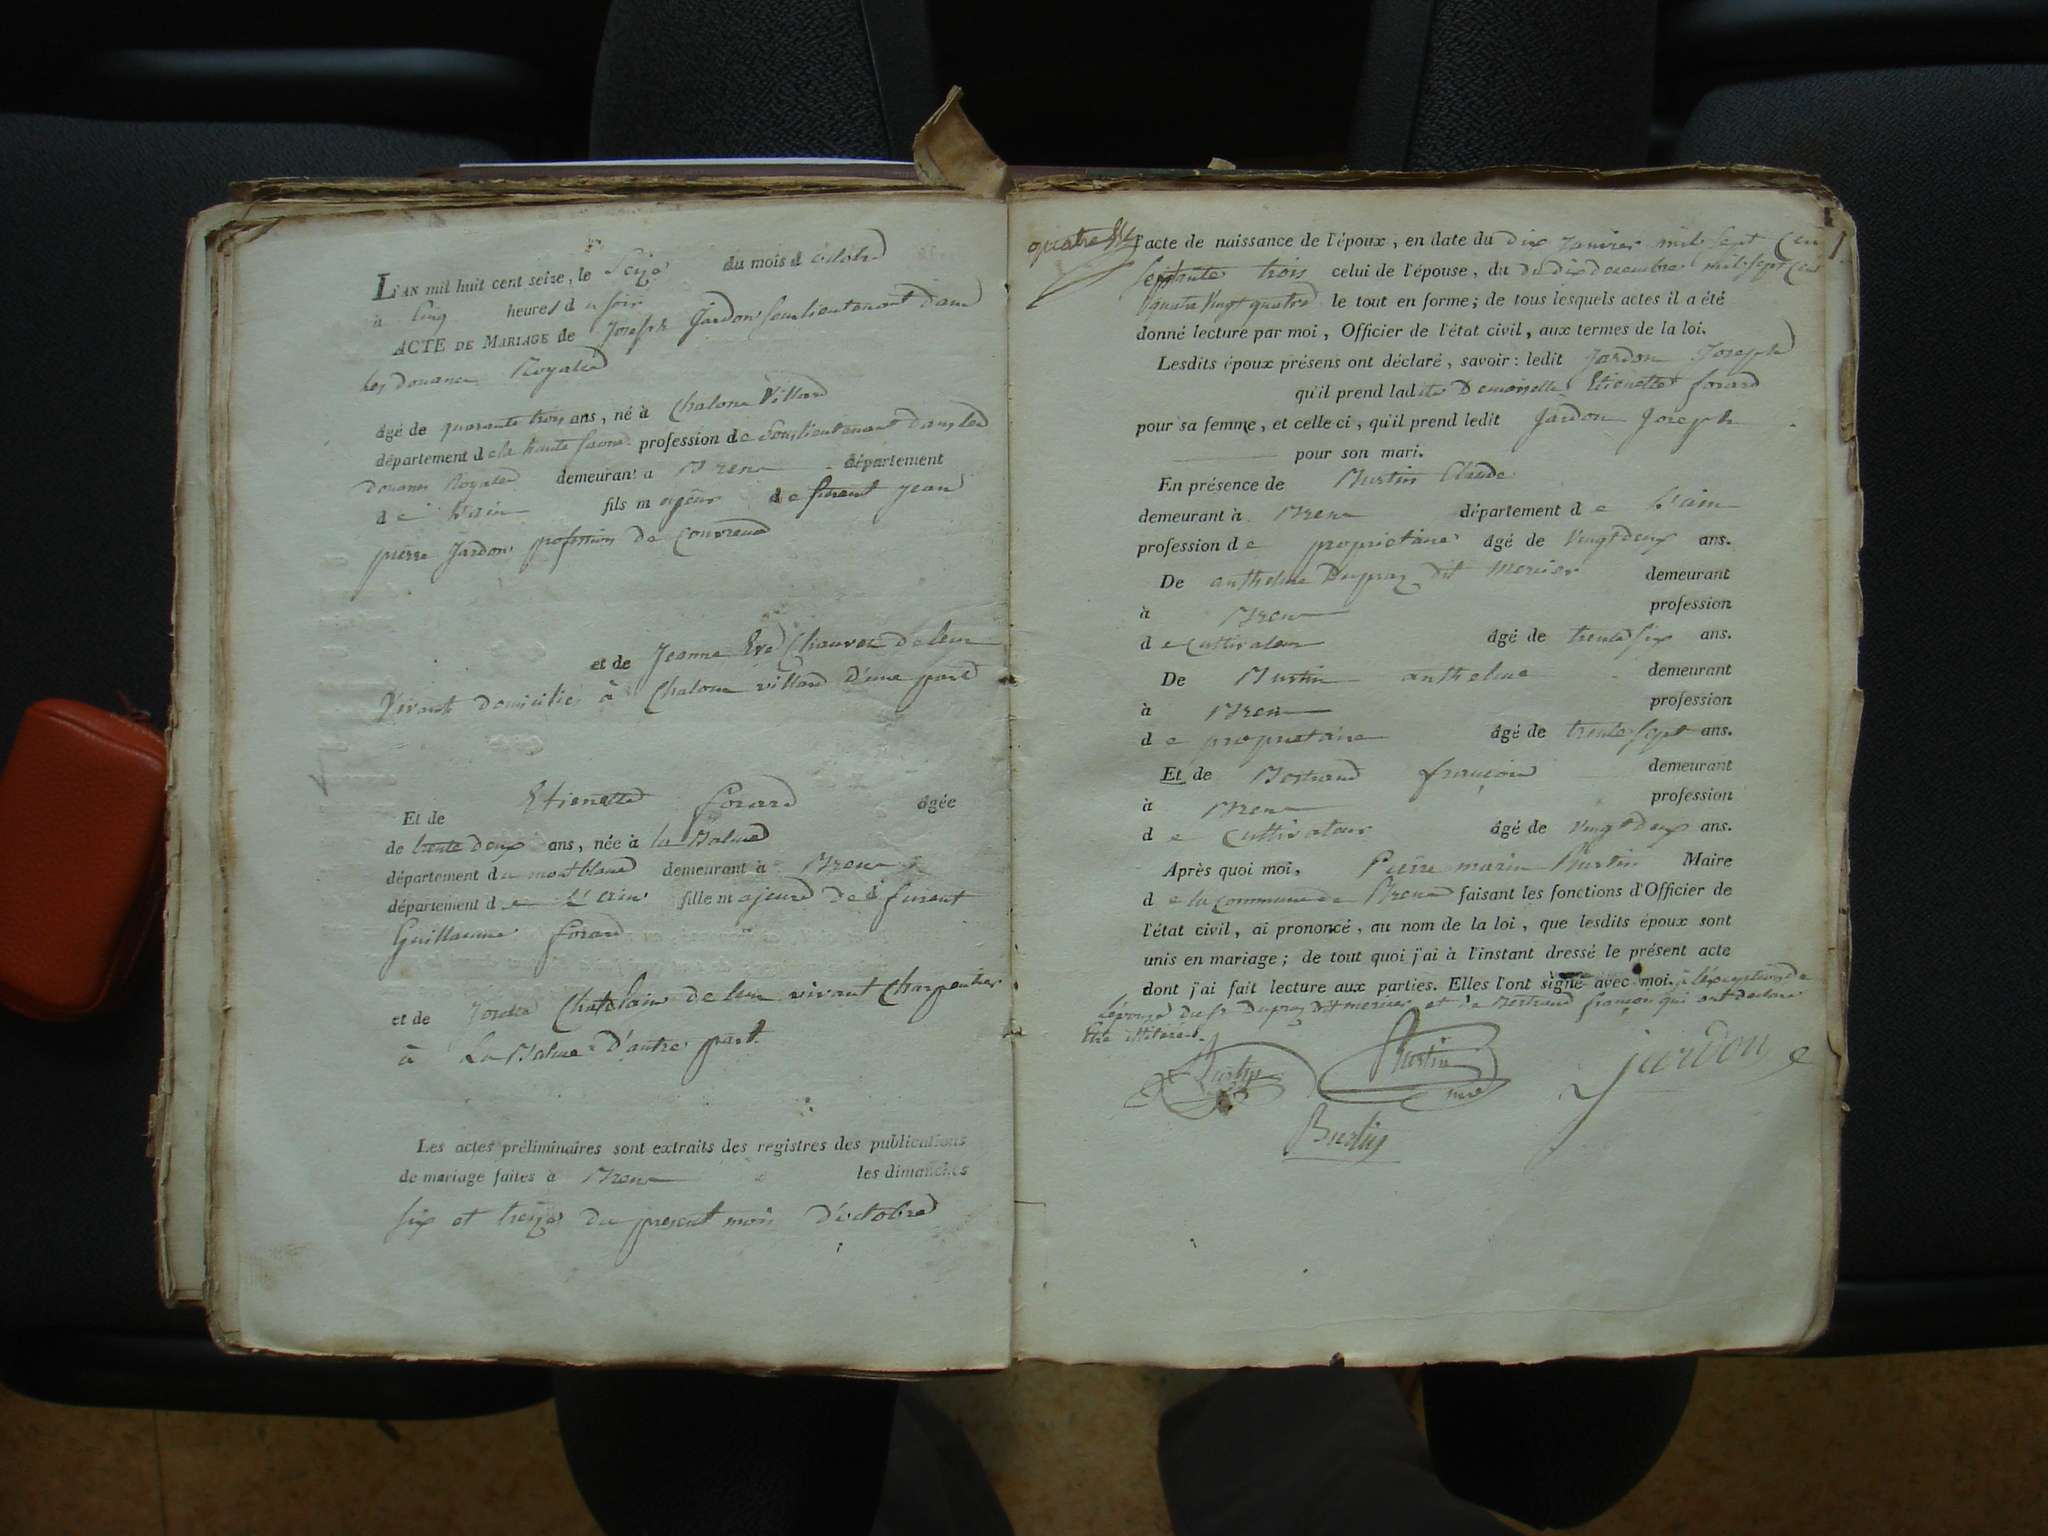 L'AN mil huit cent seize, le Seize du mois d'octobre
à Cinq heures du soir
ACTE DE MARIAGE de Joseph Jardon Souslieutenant dans
les douanes Royales
âgé de quarante trois ans, né à Chalon Villard
département de la haute Saone profession de Souslieutenant dans les
douanes Royales demeurant à Bren département
de l'ain fils majeur de furent jean
pierre Jardon profession de
et de Jeanne Eve Chauvet de leur
Vivants domiciliés à Chalon villard d'une part
Et de Etienette forard âgée
de trente deux ans, née à la Balme
département du montblanc demeurant à Bren
département de L'ain fille majeure de furent
Guillaume forard
et de Chatelain de leur vivant Charpentier
à La Balme d'autre part.
Les actes préliminaires sont extraits des registres des publications
de mariage faites à Bren les dimanches
six et treize du present mois d'octobre
quatre
l'acte de naissance de l'époux, en date du dix Janvier mil sept Cent
Septante trois celui de l'épouse, du dix decembre mil sept Cent
quatre Vingt quatre le tout en forme; de tous lesquels actes il a été
donné lecture par moi, Officier de l'état civil, aux termes de la loi.
Lesdits époux présens ont déclaré, savoir: ledit Jardon Joseph
qu'il prend ladite Demoiselle Etienette forard
pour sa femme, et celle ci, qu'il prend ledit Jardon Joseph
pour son mari.
En présence de Burtin Claude
demeurant à Bren département de l'ain
profession de proprietaire âgé de Vingt deux ans.
De anthelme Dupraz dit Mercier demeurant
à Bren profession
de Cultivateur âgé de trente six ans.
De Burtin anthelme demeurant
à Bren profession
de proprietaire âgé de trente sept ans.
Et de Bertrand françois demeurant
à Bren profession
de Cultivateur âgé de Vingt deux ans.
Après quoi moi, Pierre marin Burtin Maire
de la Commune de Bren faisant les fonctions d'Officier de
l'état civil, ai prononcé, au nom de la loi, que lesdits époux sont
unis en mariage; de tout quoi j'ai à l'instant dressé le présent acte
dont j'ai fait lecture aux parties. Elles l'ont signé avec moi. à l'exception de
l'épouse du sr Dupraz dit mercier et de Bertrand françois qui ont declaré
être illiterés.
Burtin Burtin mre Jardon
Burtin